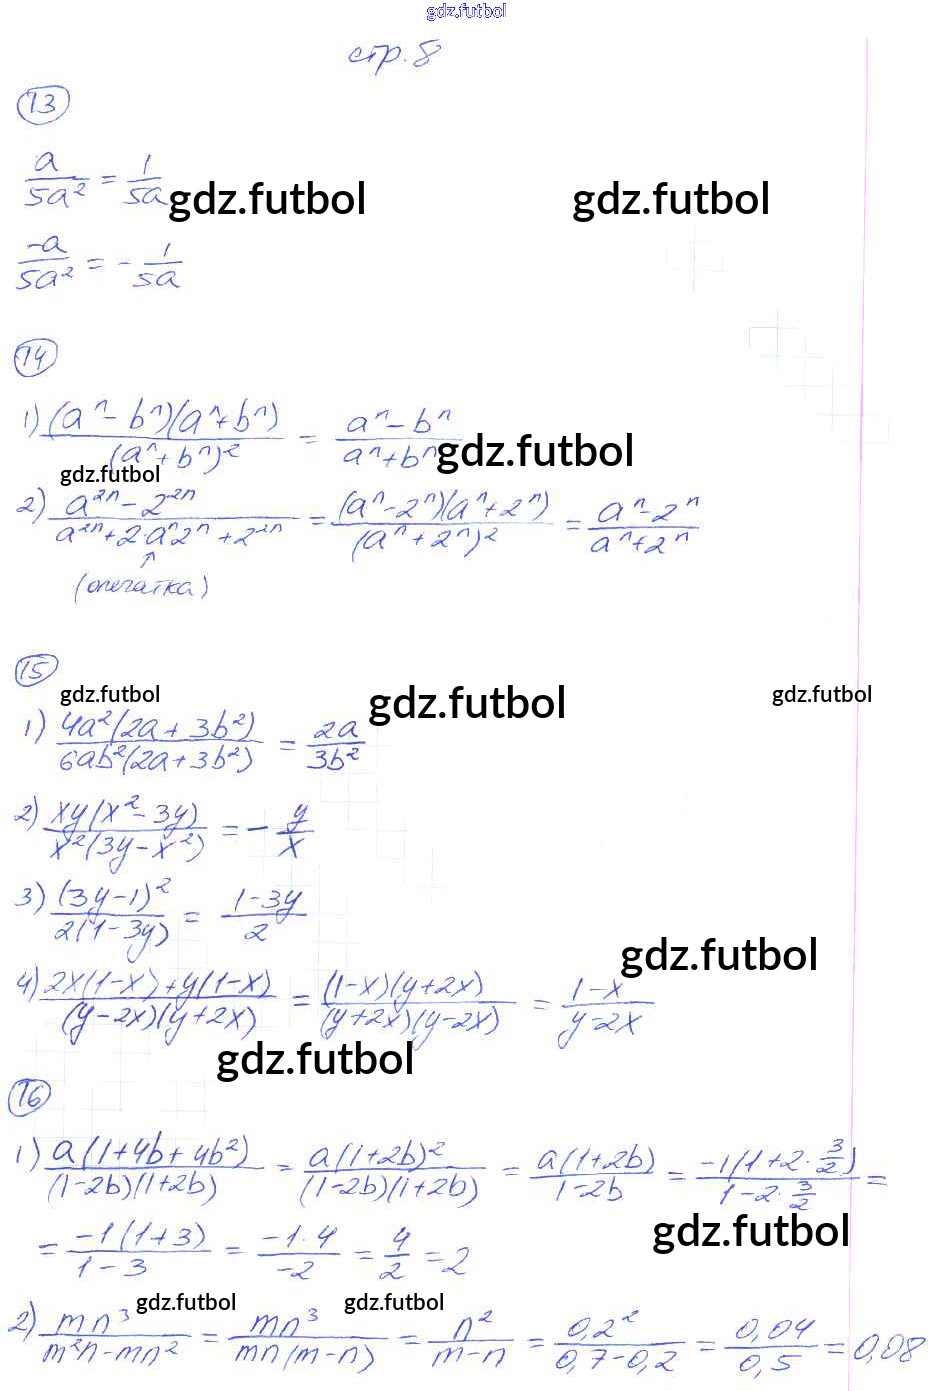 gdz.futbol
стр. 8
13
a/5a² = 1/5a
gdz.futbol gdz.futbol
-a/5a² = - 1/5a
14
1) (aⁿ - bⁿ)(aⁿ + bⁿ)/(aⁿ + bⁿ)² = aⁿ - bⁿ/aⁿ + bⁿ
gdz.futbol
gdz.futbol
2) a²ⁿ - 2²ⁿ/a²ⁿ + 2·aⁿ2ⁿ + 2²ⁿ = (aⁿ - 2ⁿ)(aⁿ + 2ⁿ)/(aⁿ + 2ⁿ)² = aⁿ - 2ⁿ/aⁿ + 2ⁿ
↑
(опечатка)
15
gdz.futbol gdz.futbol gdz.futbol
1) 4a²(2a + 3b²)/6ab²(2a + 3b²) = 2a/3b²
2) xy(x² - 3y)/x²(3y - x²) = - y/x
3) (3y - 1)²/2(1 - 3y) = 1 - 3y/2
gdz.futbol
4) 2x(1 - x) + y(1 - x)/(y - 2x)(y + 2x) = (1 - x)(y + 2x)/(y + 2x)(y - 2x) = 1 - x/y - 2x
gdz.futbol
16
1) a(1 + 4b + 4b²)/(1 - 2b)(1 + 2b) = a(1 + 2b)²/(1 - 2b)(1 + 2b) = a(1 + 2b)/1 - 2b = -1(1 + 2·3/2)/1 - 2·3/2 =
gdz.futbol
= -1(1 + 3)/1 - 3 = -1·4/-2 = 4/2 = 2
gdz.futbol gdz.futbol
2) mn³/m²n - mn² = mn³/mn(m - n) = n²/m - n = 0,2²/0,7 - 0,2 = 0,04/0,5 = 0,08